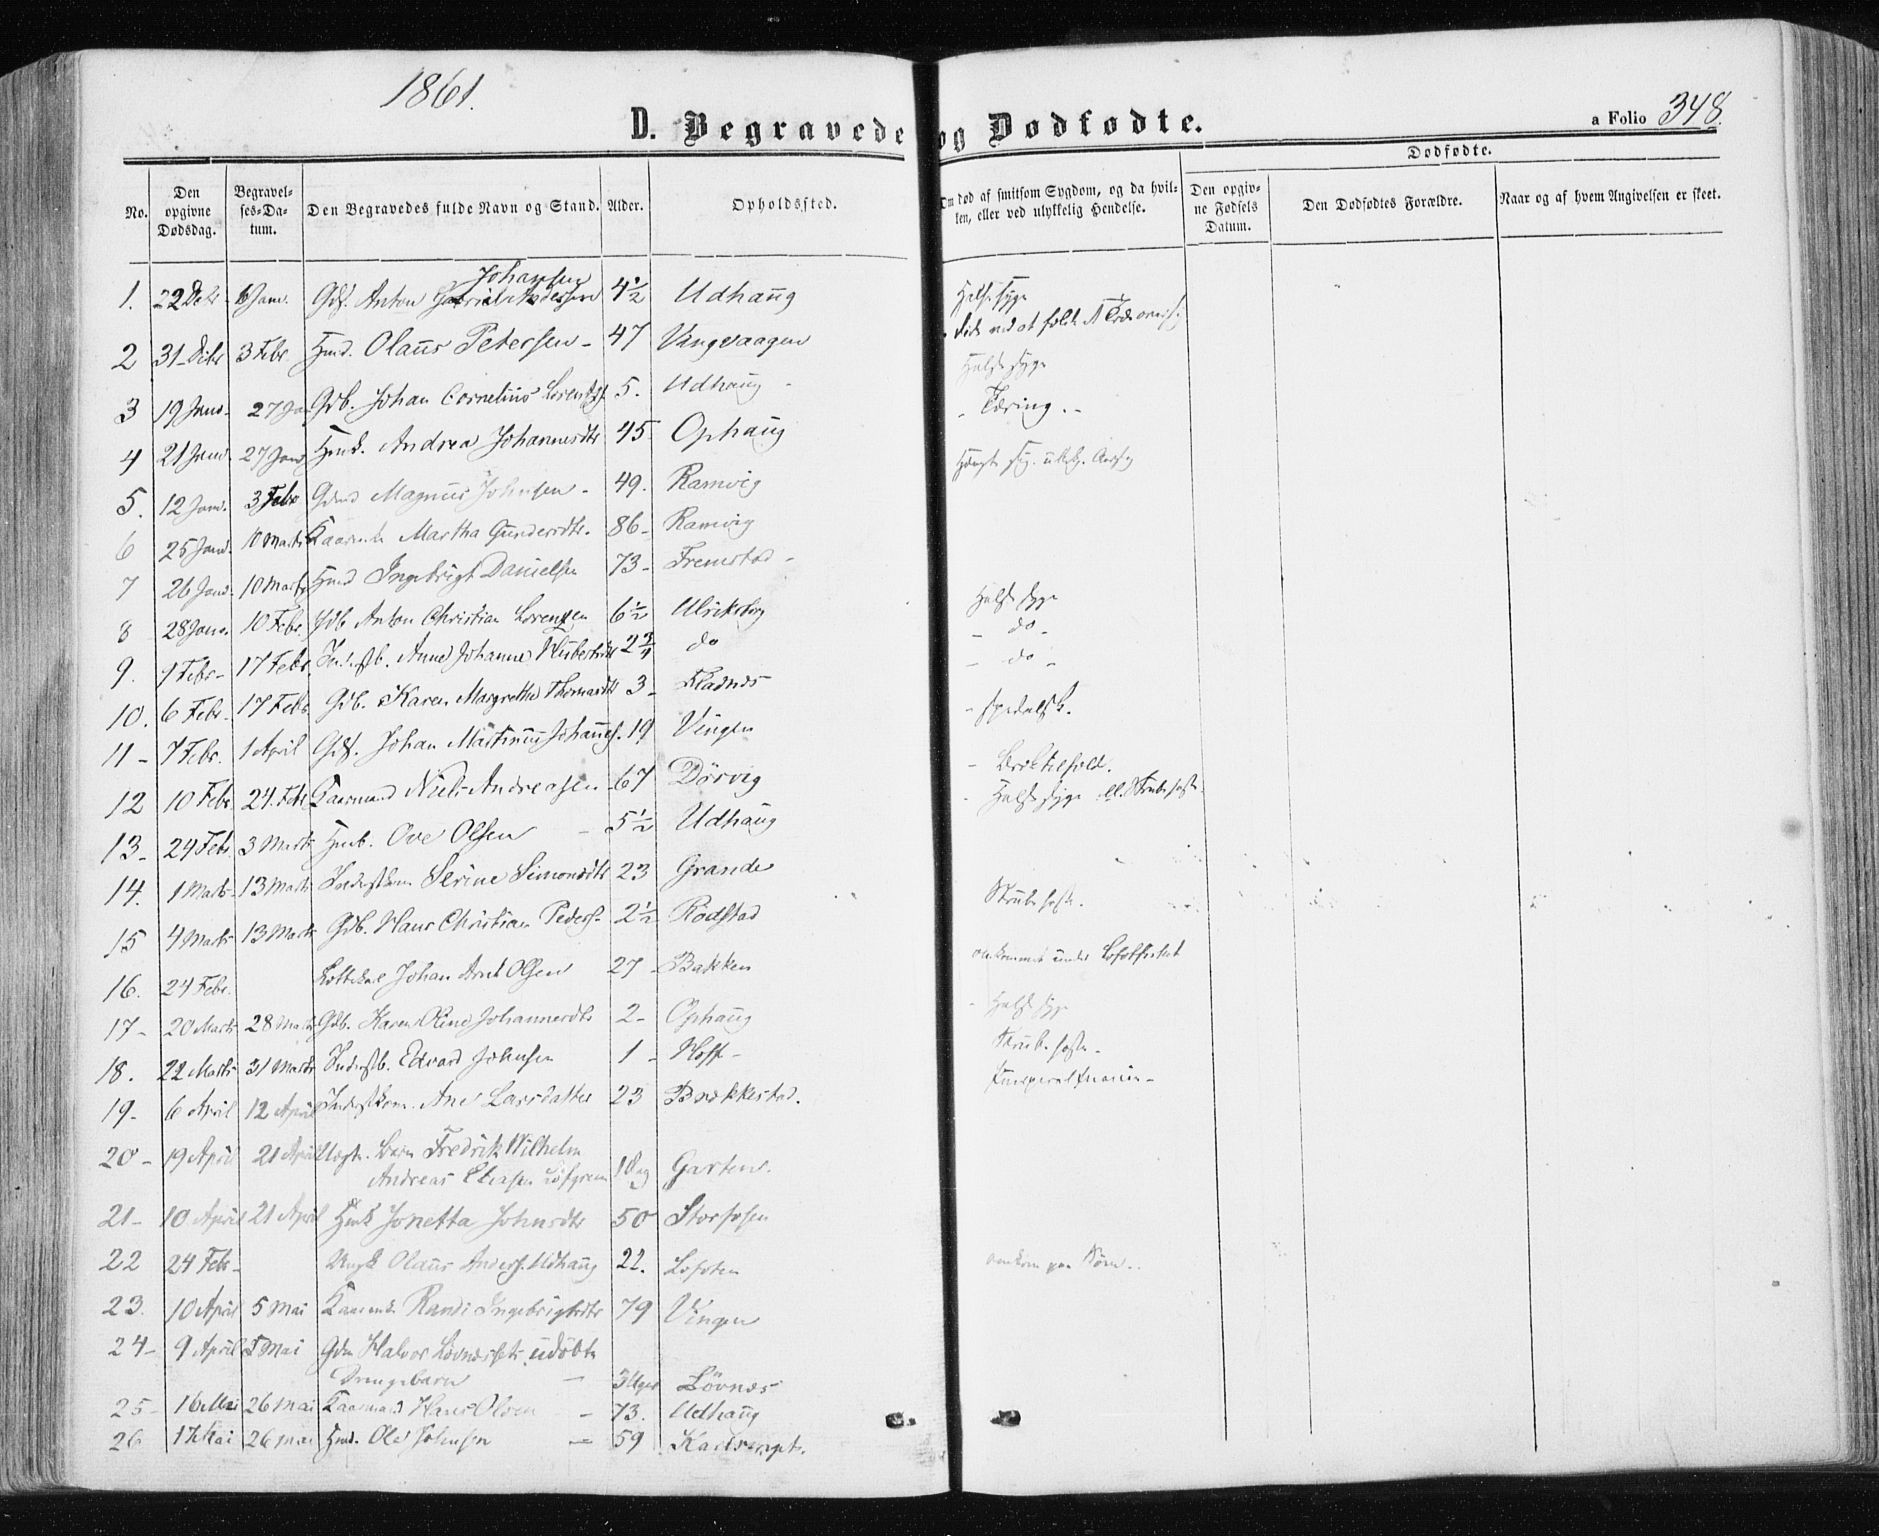 1861.
D. Begravede og Dødfødte.
a Folio 348.
Dødfødte.
No.
Den opgivne Dødsdag.
Begravel-ses-Da-tum.
Den Begravedes fulde Navn og Stand.
Alder.
Opholdssted.
Om død af smitsom Sygdom, og da hvil-ken, eller ved ulykkelig Hendelse.
Den opgiv-ne Fødsels Datum.
Den Dødfødtes Forældre.
Naar og af hvem Angivelsen er skeet.
Johansen
1. 22 Debr 6 Janr. Gds. Anton Gabriel Andersen 4½ Udhaug Halssyge
2 31 Debr 3 Febr. Hmd. Olaus Petersen - 47 Vingvaagen
3 19 Janr. 27 Jan Gdb. Johan Cornelius Lorentzs. 5. Udhaug - Halssyge
4 21 Janr. 27 Janr Hmk. Andrea Johannesdtr 45 Ophaug - Tæring. -
5. 12 Janr. 3 Febr Gdmd Magnus Johnsen - 49. Ramvig
6 25 Janr. 10 Marts Kaarenk. Martha Gundersdtr. 86 - Ramvig
7 26 Janr. 10 Marts Hmd Ingebrigt Danielsen 73 - Fremstad -
8 28 Janr. 10 Febr. Gdb Anton Christian Lorentzen 6½ Ulriksborg Halssyge
9. 9 Febr - 17 Febr. Inderstb. Anne Johanne 2¾ do - do -
10. 6 Febr. 17 Febr Gdb. Karen Margrethe Thomasdtr 3 - Fladnes - do -
11 - 7 Febr. 1 April Gds. Johan Martinus Johans. 19 Vingen - spedalsk.
12 10 Febr 24. Febr Kaarmand Niels Andreasen 67 Dörvig
13 - 24 Febr 3 Marts Hmb. Ove Olsen - 5½ Udhaug - Halssyge ell. Strubehoste.
14. 1 Marts 13 Marts Inderstkone Serine Simonsdtr 23 Grande
15 4 Marts 13 Marts Gdb. Hans Christian Peders. 2½ Rödstad Strubehoste.
16. 24 Febr. Johan Arnt Olsen 27 - Bakken omkommet under Lofotfisket
17 - 20 Marts 28 Marts Gdb. Karen Oline Johannesdtr 2 - Ophaug - Halssyge
18. 22 Marts 31 Marts Inderstb. Edvard Johnsen 1 - Hoff - Strubehoste -
19 - 6 April 12 April Inderstkone Ane Larsdatter 23 Brækkestad.
20 - 19 April 21 April Barn Fredrik Wilhelm
Andreas Eliasen Löfgren 1 Dag Garten.
21 - 10 April 21 April Hmk Jonetta Johnsdtr 50 Storfosen
22 24 Febr - Ungk Olaus Anders. Udhaug 22. Lofoten omkom paa Söen.
23. 10 April 5 Mai Kaarenk. Randi Ingebrigtsdtr 79 Vingen
24 - 9 April 5 Mai Gdm Halvor udöbte
Drengebarn - 3 Uger Lövnes
25 - 16 Mai 26 Mai Kaarmand Hans Olsen - 73. Udhaug
26 17 Mai 26 Mai Hmd. Ole Johnsen - 59